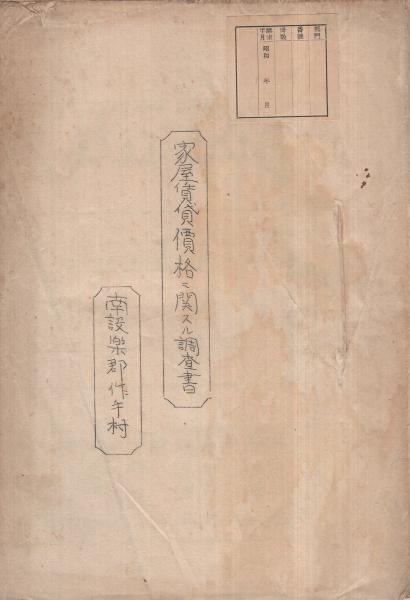 部門
番號
冊數
調製年月 昭和 年 月
家屋賃貸價格ニ関スル調査書
南設楽郡作手村